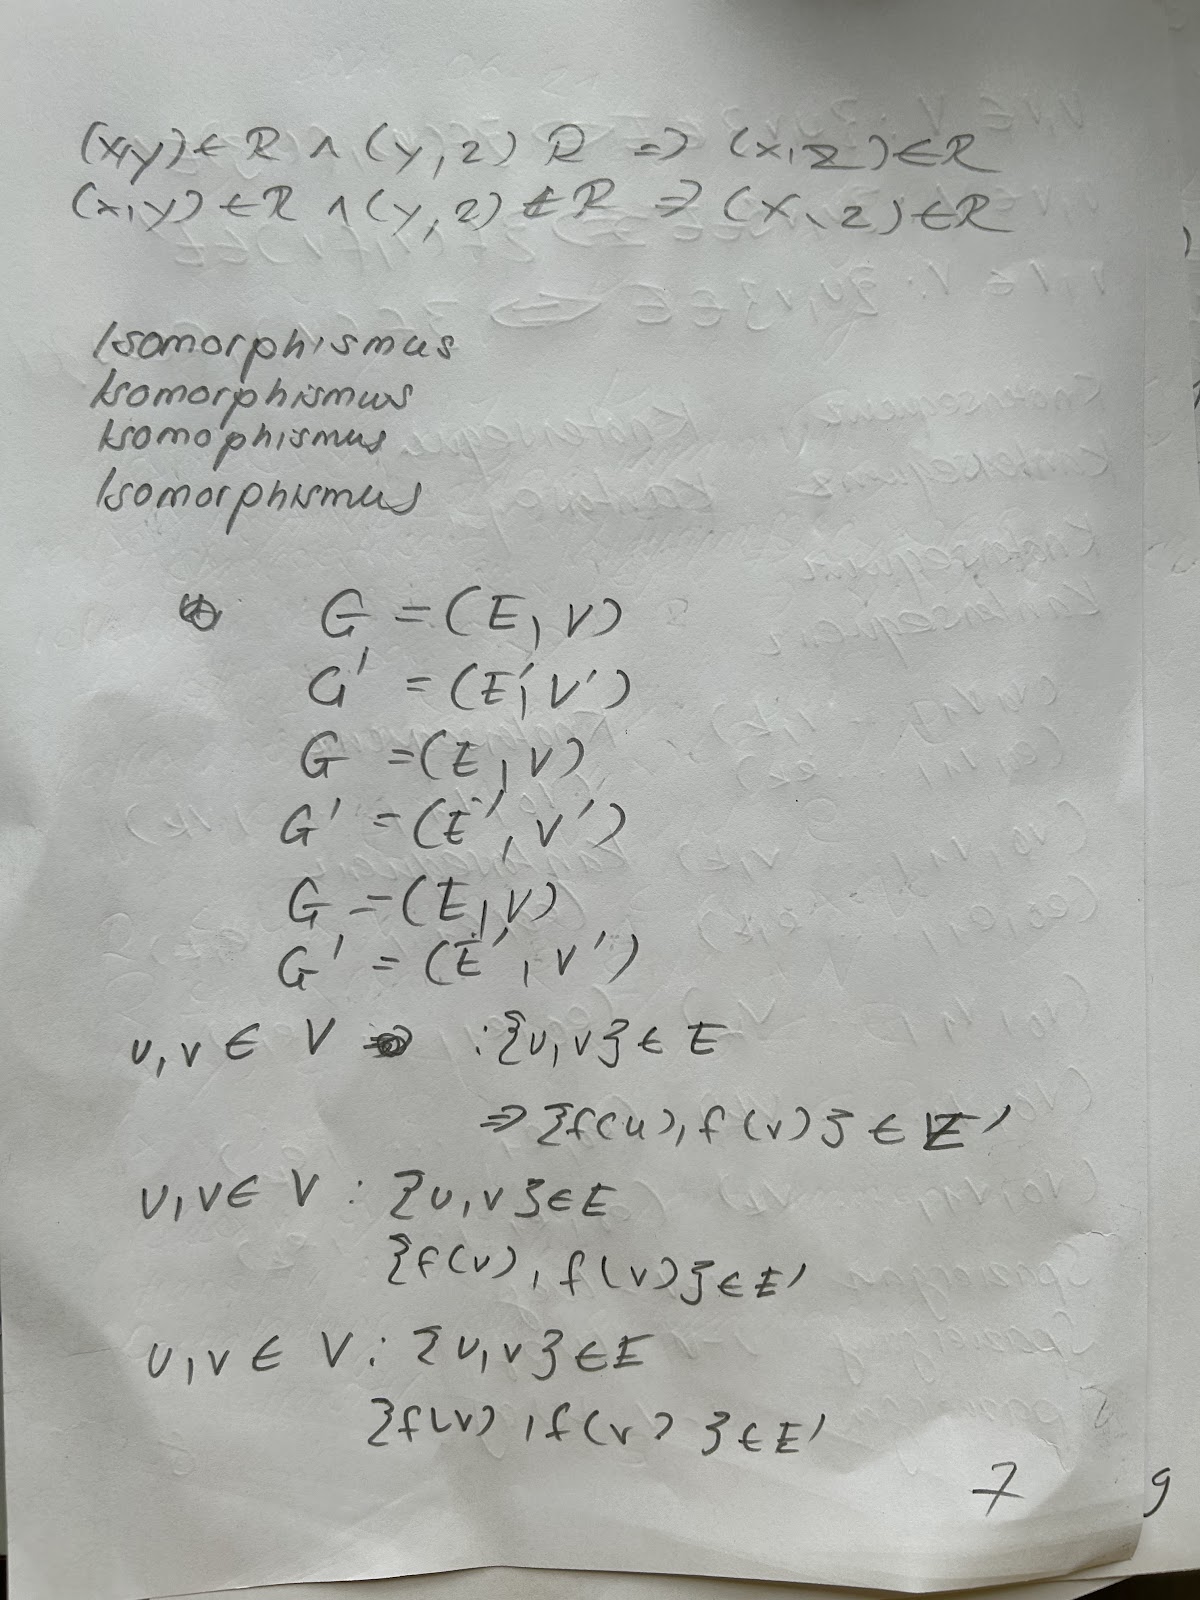 (x,y) ∈ R ∧ (y, z) R => (x, z) ∈ R
(x,y) ∈ R ∧ (y, z) ∈ R => (x, z) ∈ R
Isomorphismus
Isomorphismus
Isomophismus
Isomorphismus
G = (E, V)
G' = (E', V')
G = (E, V)
G' = (E', V')
G = (E, V)
G' = (E', V')
u, v ∈ V : {u, v} ∈ E
=> {f(u), f(v)} ∈ E'
u, v ∈ V : {u, v} ∈ E
{f(v), f(v)} ∈ E'
u, v ∈ V : {u, v} ∈ E
{f(v), f(v)} ∈ E'
7
9